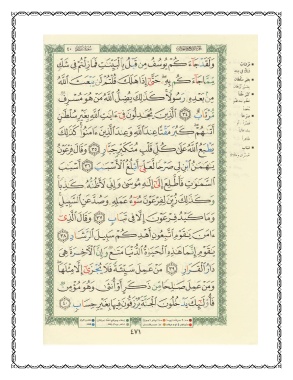 وَلَقَدْ جَآءَكُمْ يُوسُفُ مِن قَبْلُ بِٱلْبَيِّنَٰتِ فَمَا زِلْتُمْ فِى شَكٍّ
مِّمَّا جَآءَكُم بِهِۦ حَتَّىٰٓ إِذَا هَلَكَ قُلْتُمْ لَن يَبْعَثَ ٱللَّهُ
مِنۢ بَعْدِهِۦ رَسُولًا كَذَٰلِكَ يُضِلُّ ٱللَّهُ مَنْ هُوَ مُسْرِفٌ
مُّرْتَابٌ ٣٤ ٱلَّذِينَ يُجَٰدِلُونَ فِىٓ ءَايَٰتِ ٱللَّهِ بِغَيْرِ سُلْطَٰنٍ
أَتَىٰهُمْ كَبُرَ مَقْتًا عِندَ ٱللَّهِ وَعِندَ ٱلَّذِينَ ءَامَنُوا۟ كَذَٰلِكَ
يَطْبَعُ ٱللَّهُ عَلَىٰ كُلِّ قَلْبِ مُتَكَبِّرٍ جَبَّارٍ ٣٥ وَقَالَ فِرْعَوْنُ
يَٰهَٰمَٰنُ ٱبْنِ لِى صَرْحًا لَّعَلِّىٓ أَبْلُغُ ٱلْأَسْبَٰبَ ٣٦ أَسْبَٰبَ
ٱلسَّمَٰوَٰتِ فَأَطَّلِعَ إِلَىٰٓ إِلَٰهِ مُوسَىٰ وَإِنِّى لَأَظُنُّهُۥ كَٰذِبًا
وَكَذَٰلِكَ زُيِّنَ لِفِرْعَوْنَ سُوٓءُ عَمَلِهِۦ وَصُدَّ عَنِ ٱلسَّبِيلِ
وَمَا كَيْدُ فِرْعَوْنَ إِلَّا فِى تَبَابٍ ٣٧ وَقَالَ ٱلَّذِىٓ
ءَامَنَ يَٰقَوْمِ ٱتَّبِعُونِ أَهْدِكُمْ سَبِيلَ ٱلرَّشَادِ ٣٨
يَٰقَوْمِ إِنَّمَا هَٰذِهِ ٱلْحَيَوٰةُ ٱلدُّنْيَا مَتَٰعٌ وَإِنَّ ٱلْءَاخِرَةَ هِىَ
دَارُ ٱلْقَرَارِ ٣٩ مَنْ عَمِلَ سَيِّئَةً فَلَا يُجْزَىٰٓ إِلَّا مِثْلَهَا
وَمَنْ عَمِلَ صَٰلِحًا مِّن ذَكَرٍ أَوْ أُنثَىٰ وَهُوَ مُؤْمِنٌ
فَأُو۟لَٰٓئِكَ يَدْخُلُونَ ٱلْجَنَّةَ يُرْزَقُونَ فِيهَا بِغَيْرِ حِسَابٍ ٤٠
٤٧١